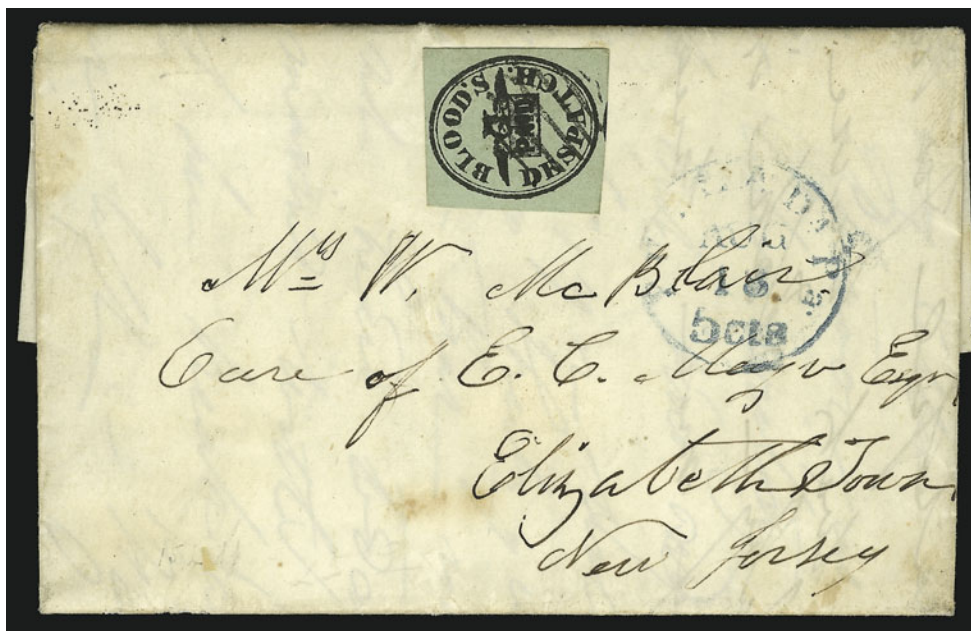 BLOOD'S DESPATCH.
PAID
PHILADA
AUG
18
5cts
Mrs W. McBlair
Care of E. C. Mayo Esqr
Elizabeth Town
New Jersey